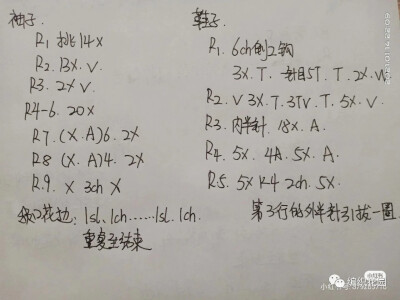 袖子.
R1 挑14X
R2. 13X. V.
R3. 2X V.
R4-6. 20X
R7. (X.A)6. 2X
R8 (X.A)4. 2X
R.9. X 3ch X
领口花边: 1sl. 1ch......1sl. 1ch.
重复至结束
鞋子.
R1. 6ch倒2钩
3X. T. 一针目5T. T. 2X. W
R2. V 3X. T. 3TV. T. 5X. V.
R3. 内半针 18X. A.
R4. 5X. 4A. 5X. A.
R5. 5X K4 2ch. 5X.
第3行的外半针引拔一圈.
小红书
编织花园